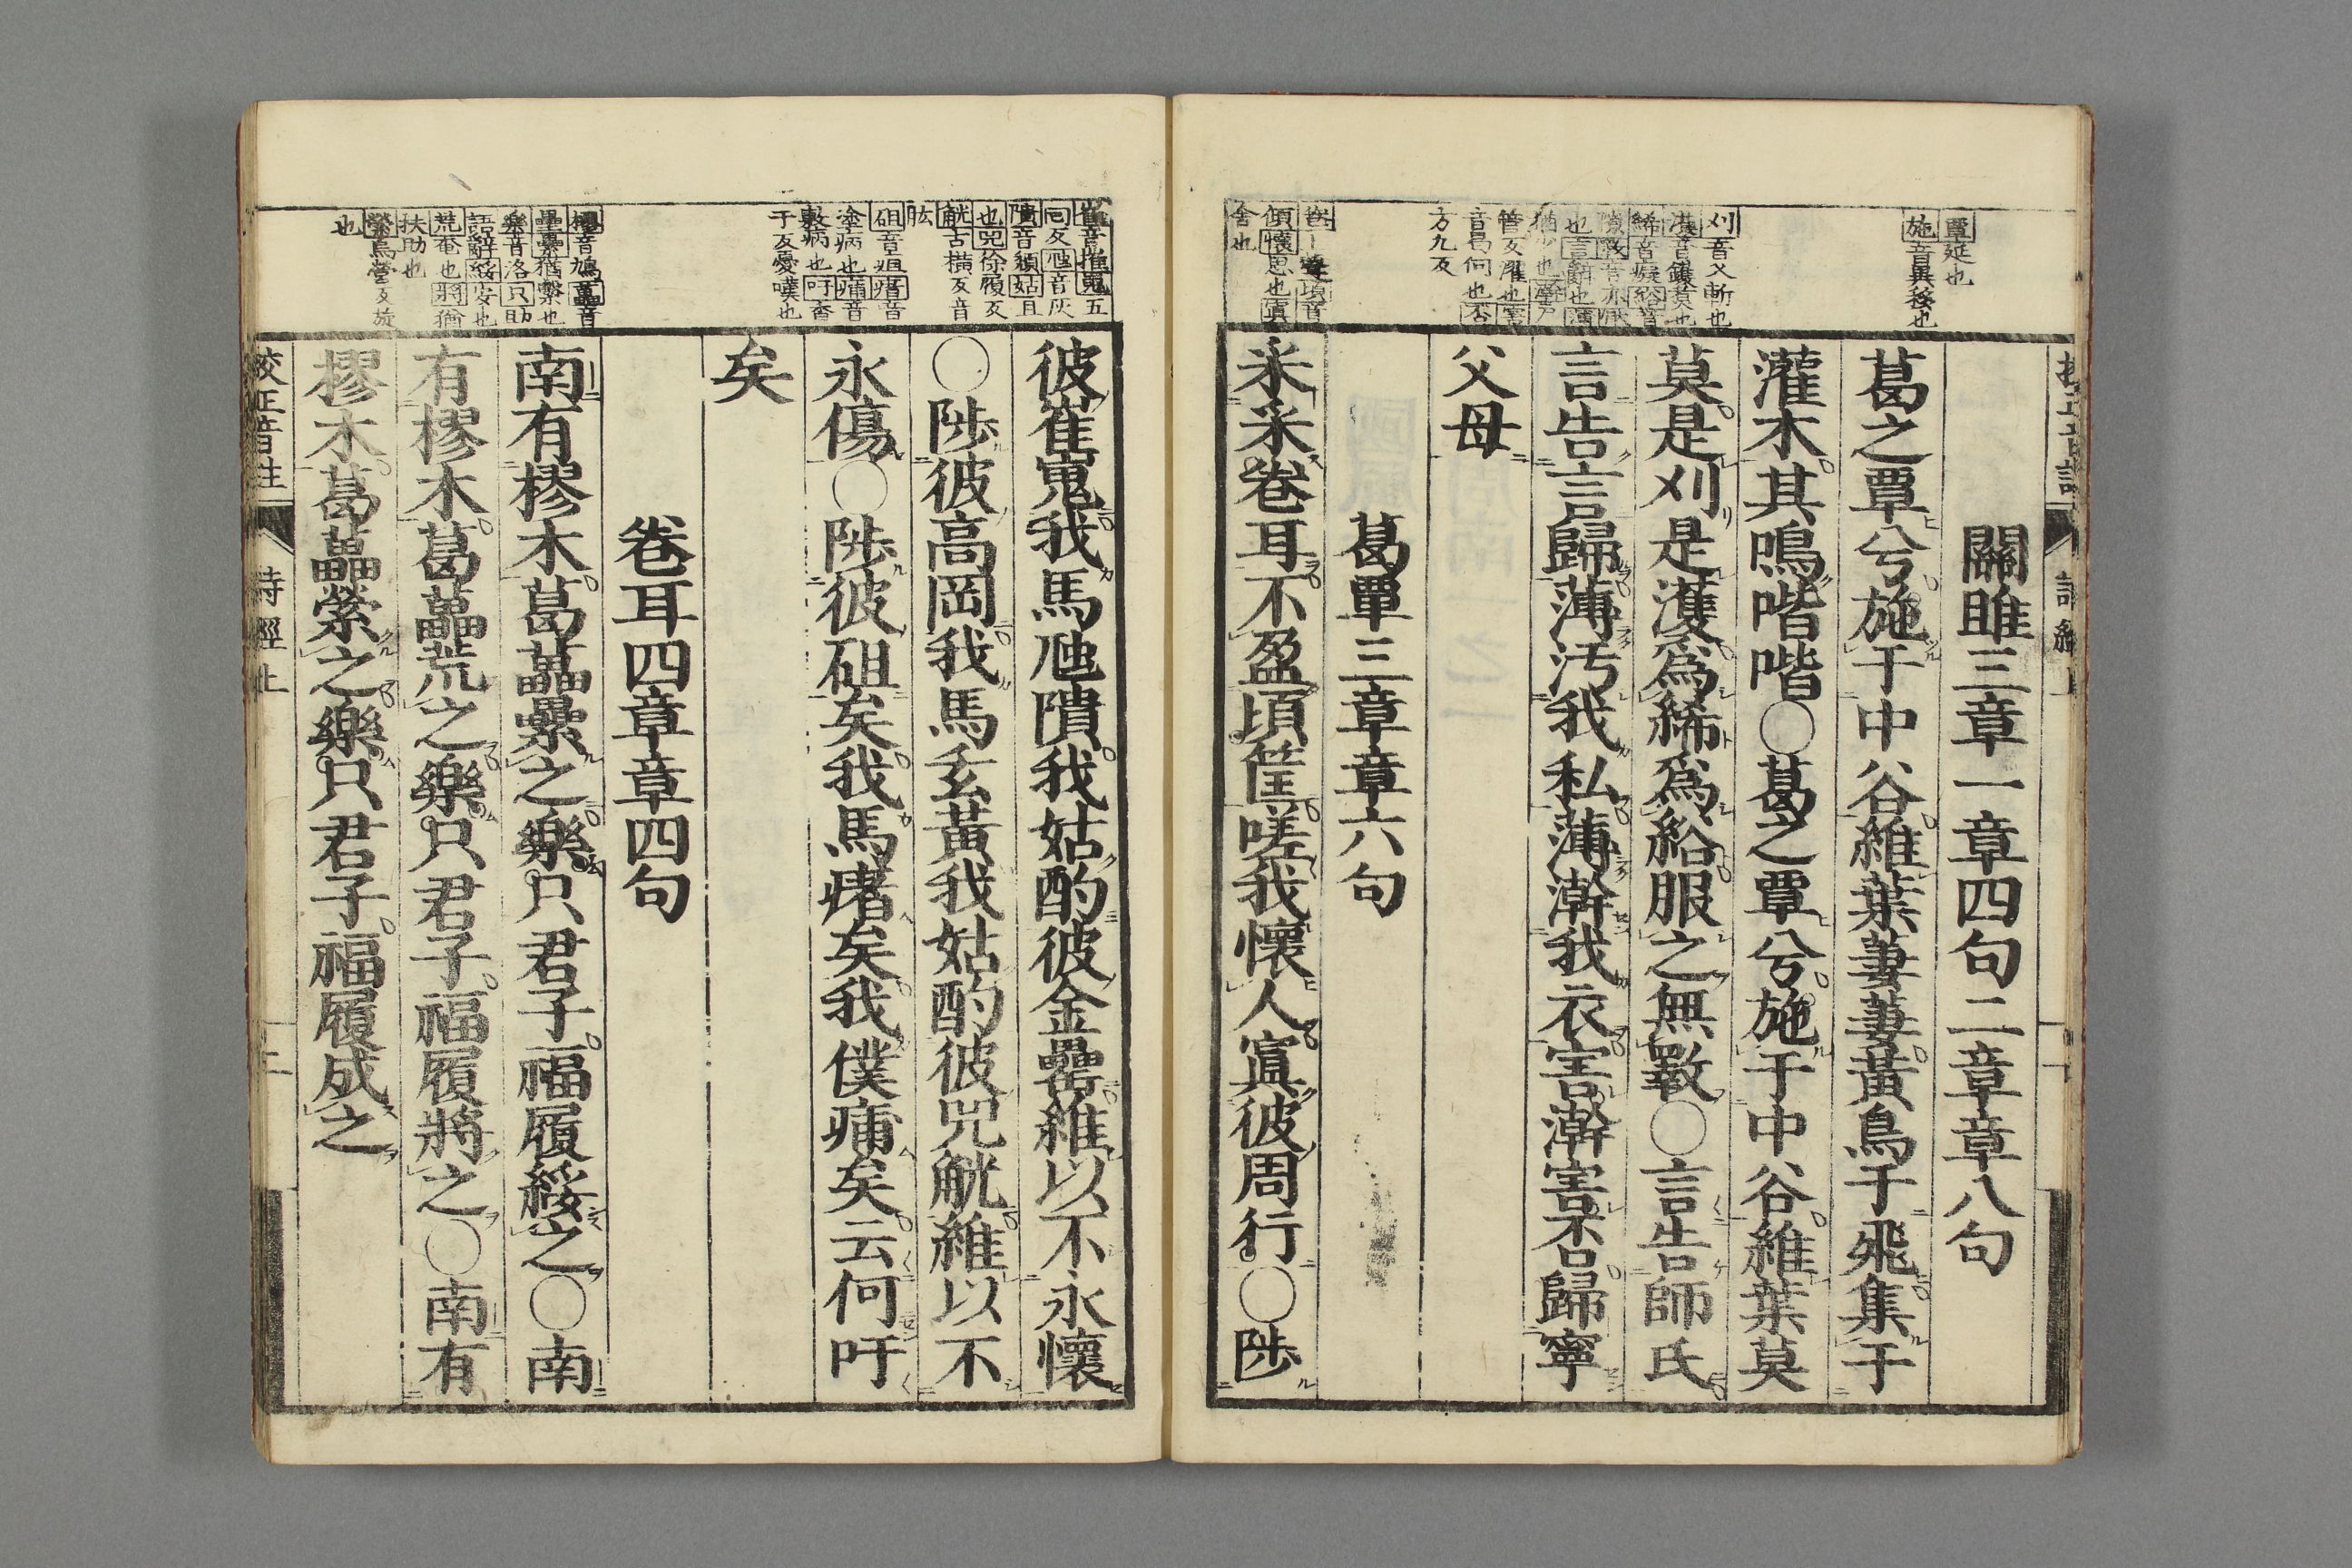 關雎三章一章四句二章章八句
葛之覃兮施于中谷維葉萋萋黃鳥于飛集于
灌木其鳴喈喈○葛之覃兮施于中谷維葉莫
莫是刈是濩爲絺爲綌服之無斁○言告師氏
言告言歸薄汚我私薄澣我衣害澣害否歸寧
父母
葛覃三章章六句
采采卷耳不盈頃筐嗟我懷人寘彼周行○陟
覃延也
施音異移也
刈音乂斬也
濩音鑊煑也
方九反
舍也
彼崔嵬我馬虺隤我姑酌彼金罍維以不永懷
○陟彼高岡我馬玄黃我姑酌彼兕觥維以不
永傷○陟彼砠矣我馬瘏矣我僕痡矣云何吁
矣
卷耳四章章四句
南有樛木葛藟纍之樂只君子福履綏之○南
有樛木葛藟荒之樂只君子福履將之○南有
樛木葛藟縈之樂只君子福履成之
崔音摧嵬五
回反虺音灰
隤音頹姑且
也兕徐履反
觥古橫反音
肱
砠音疽瘏音
塗病也痡音
敷病也吁音
于反憂嘆也
樛音鳩藟音
壘纍猶繫也
樂音洛只助
語辭綏安也
荒奄也將猶
扶助也
縈烏營反旋
也
校正音註
詩經上